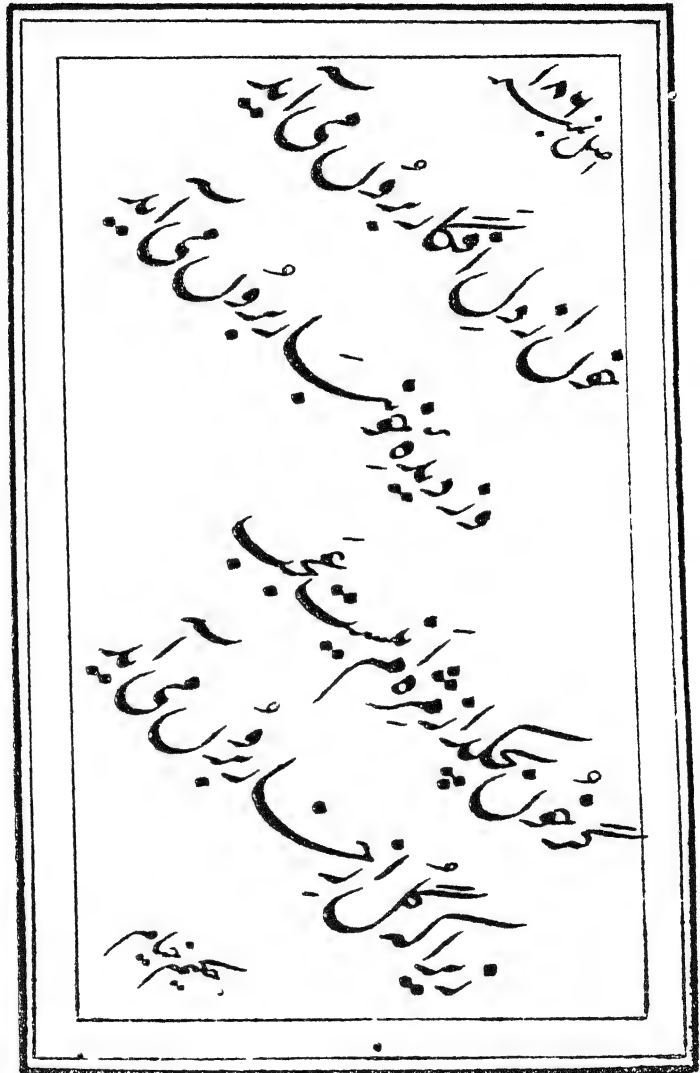 اصل نمبر ۱۸۶
خوں از دلِ افگار بروُں می آید
وز دیدۂِ خونبار بروُں می آید
گر خوُں بچکد از مژہِ مَن نیست عَجَب
زیرا کہ گُل از خار بروُں می آید
حکیم خیام